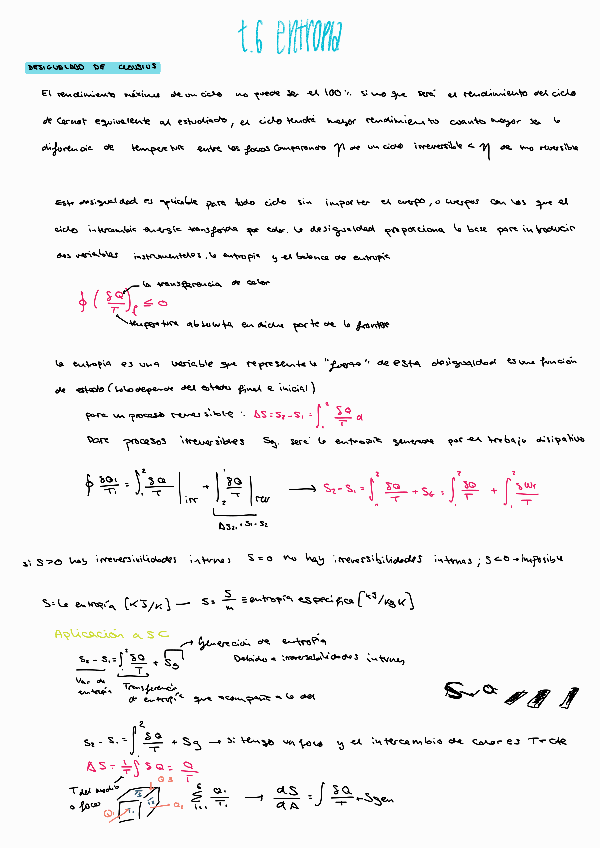 t.6 entropia
DESIGUALDAD DE CLAUSIUS
El rendimiento máximo de un ciclo no puede ser el 100% sino que será el rendimiento del ciclo
de Carnot equivalente al estudiado, el ciclo tendrá mayor rendimiento cuanto mayor sea la
diferencia de temperatura entre los focos Comparando η de un ciclo irreversible < η de uno reversible
Esta desigualdad es aplicable para todo ciclo sin importar el cuerpo, o cuerpos con los que el
ciclo intercambia energía transferida por calor. la desigualdad proporciona la base para introducir
dos variables instrumentales, la entropía y el balance de entropía
la transferencia de calor
∮ (δQ/T)f ≤ 0
temperatura absoluta en dicha parte de la frontera
la entropía es una variable que representa la "fuerza" de esta desigualdad es una función
de estado (solo depende del estado final e inicial)
para un proceso reversible: ΔS = S2 - S1 = ∫ δQ/T
Para procesos irreversibles Sg será la entropía generada por el trabajo disipativo
∮ δQi/Ti = ∫ δQ/T | irr + | ∫ δQ/T | rev → S2 - S1 = ∫ δQ/T + SG = ∫ δQ/T + ∫ δWr/T
ΔS21 = S1 - S2
si S>0 hay irreversibilidades internas S=0 no hay irreversibilidades internas; S<0 → imposible
S = la entropía [KJ/K] — s = S/m = entropía específica [KJ/kgK]
Aplicación a SC
Generación de entropía
S2 - S1 = ∫ δQ/T + Sg
Debido a irreversibilidades internas
Var de entropía
Transferencia de entropía que acompaña a la del
S2 - S1 = ∫ δQ/T + Sg → si tengo un foco y el intercambio de calor es T = cte
ΔS = 1/T ∫ δQ = Q/T
T del medio o foco
Q3
Σ Qi/Ti → dS/dA = ∫ δQ/T + Sgen